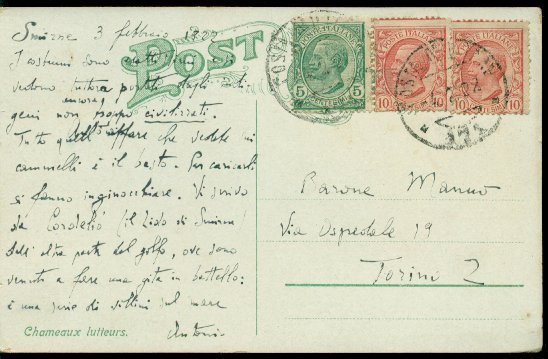 Smirne 3 febbraio 1922
POST
I costumi sono
vedono tuttora portati dagli indi
ancora,
geni non troppo civilizzati.
Tutto quell'affare che vedete sui
cammelli è il basto. Per caricarli
si fanno inginocchiare. Vi scrivo
da Cordelio (il Lido di Smirne)
dall'altra parte del golfo, ove sono
venuto a fare una gita in battello:
è una serie di villini sul mare
Antonio
Chameaux lutteurs.
POSTE ITALIANE
5 CENTESIMI 5
POSTE ITALIANE
10 10
POSTE ITALIANE
10 10
Barone Manno
Via Ospedale 19
Torino 2